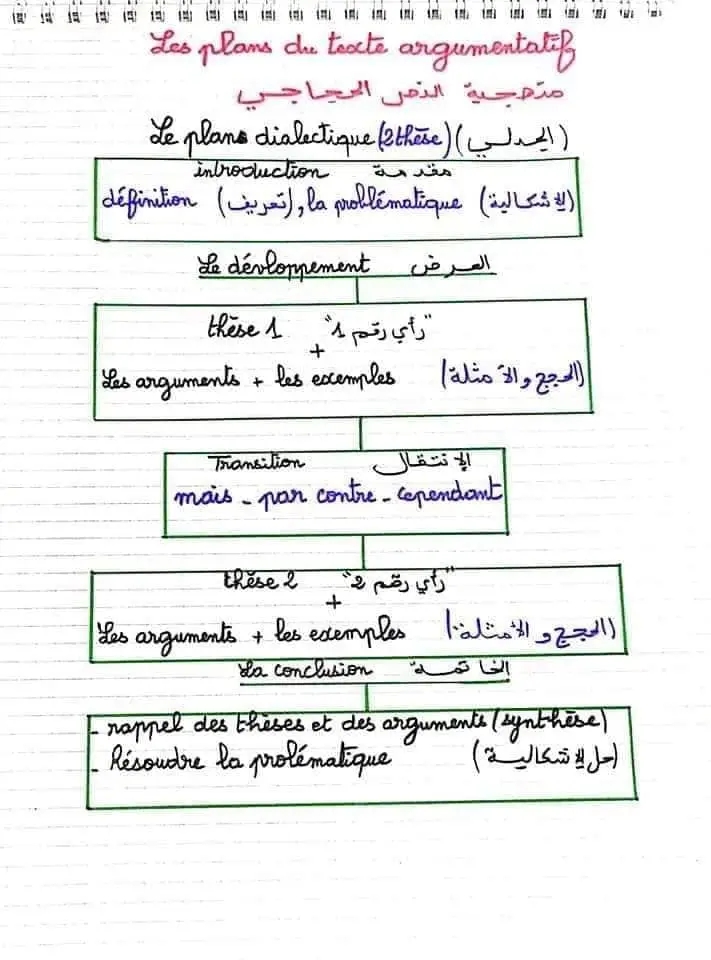 Les plans du texte argumentatif
منهجية النص الحجاجي
Le plans dialectique (2thèse) (الجدلي)
introduction مقدمة
définition (تعريف), la problématique (الإشكالية)
Le dévloppement العرض
thèse 1 "رأي رقم 1"
+
Les arguments + les exemples (الحجج والأمثلة)
Transition الإنتقال
mais - par contre - cependant
thèse 2 "رأي رقم 2"
+
Les arguments + les exemples (الحجج و الأمثلة)
La conclusion الخاتمة
- rappel des thèses et des arguments (synthèse)
- Résoudre la prolématique (حل الإشكالية)